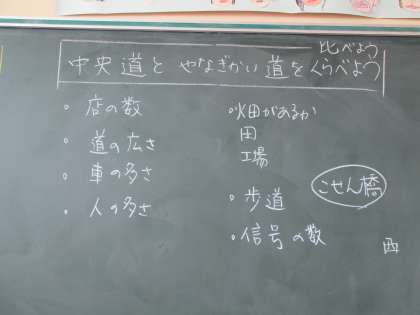 比べよう
中央道と やなぎかい道をくらべよう
・店の数
・道の広さ
・車の多さ
・人の多さ
・畑があるか
田
工場
こせん橋
・歩道
・信号の数
西